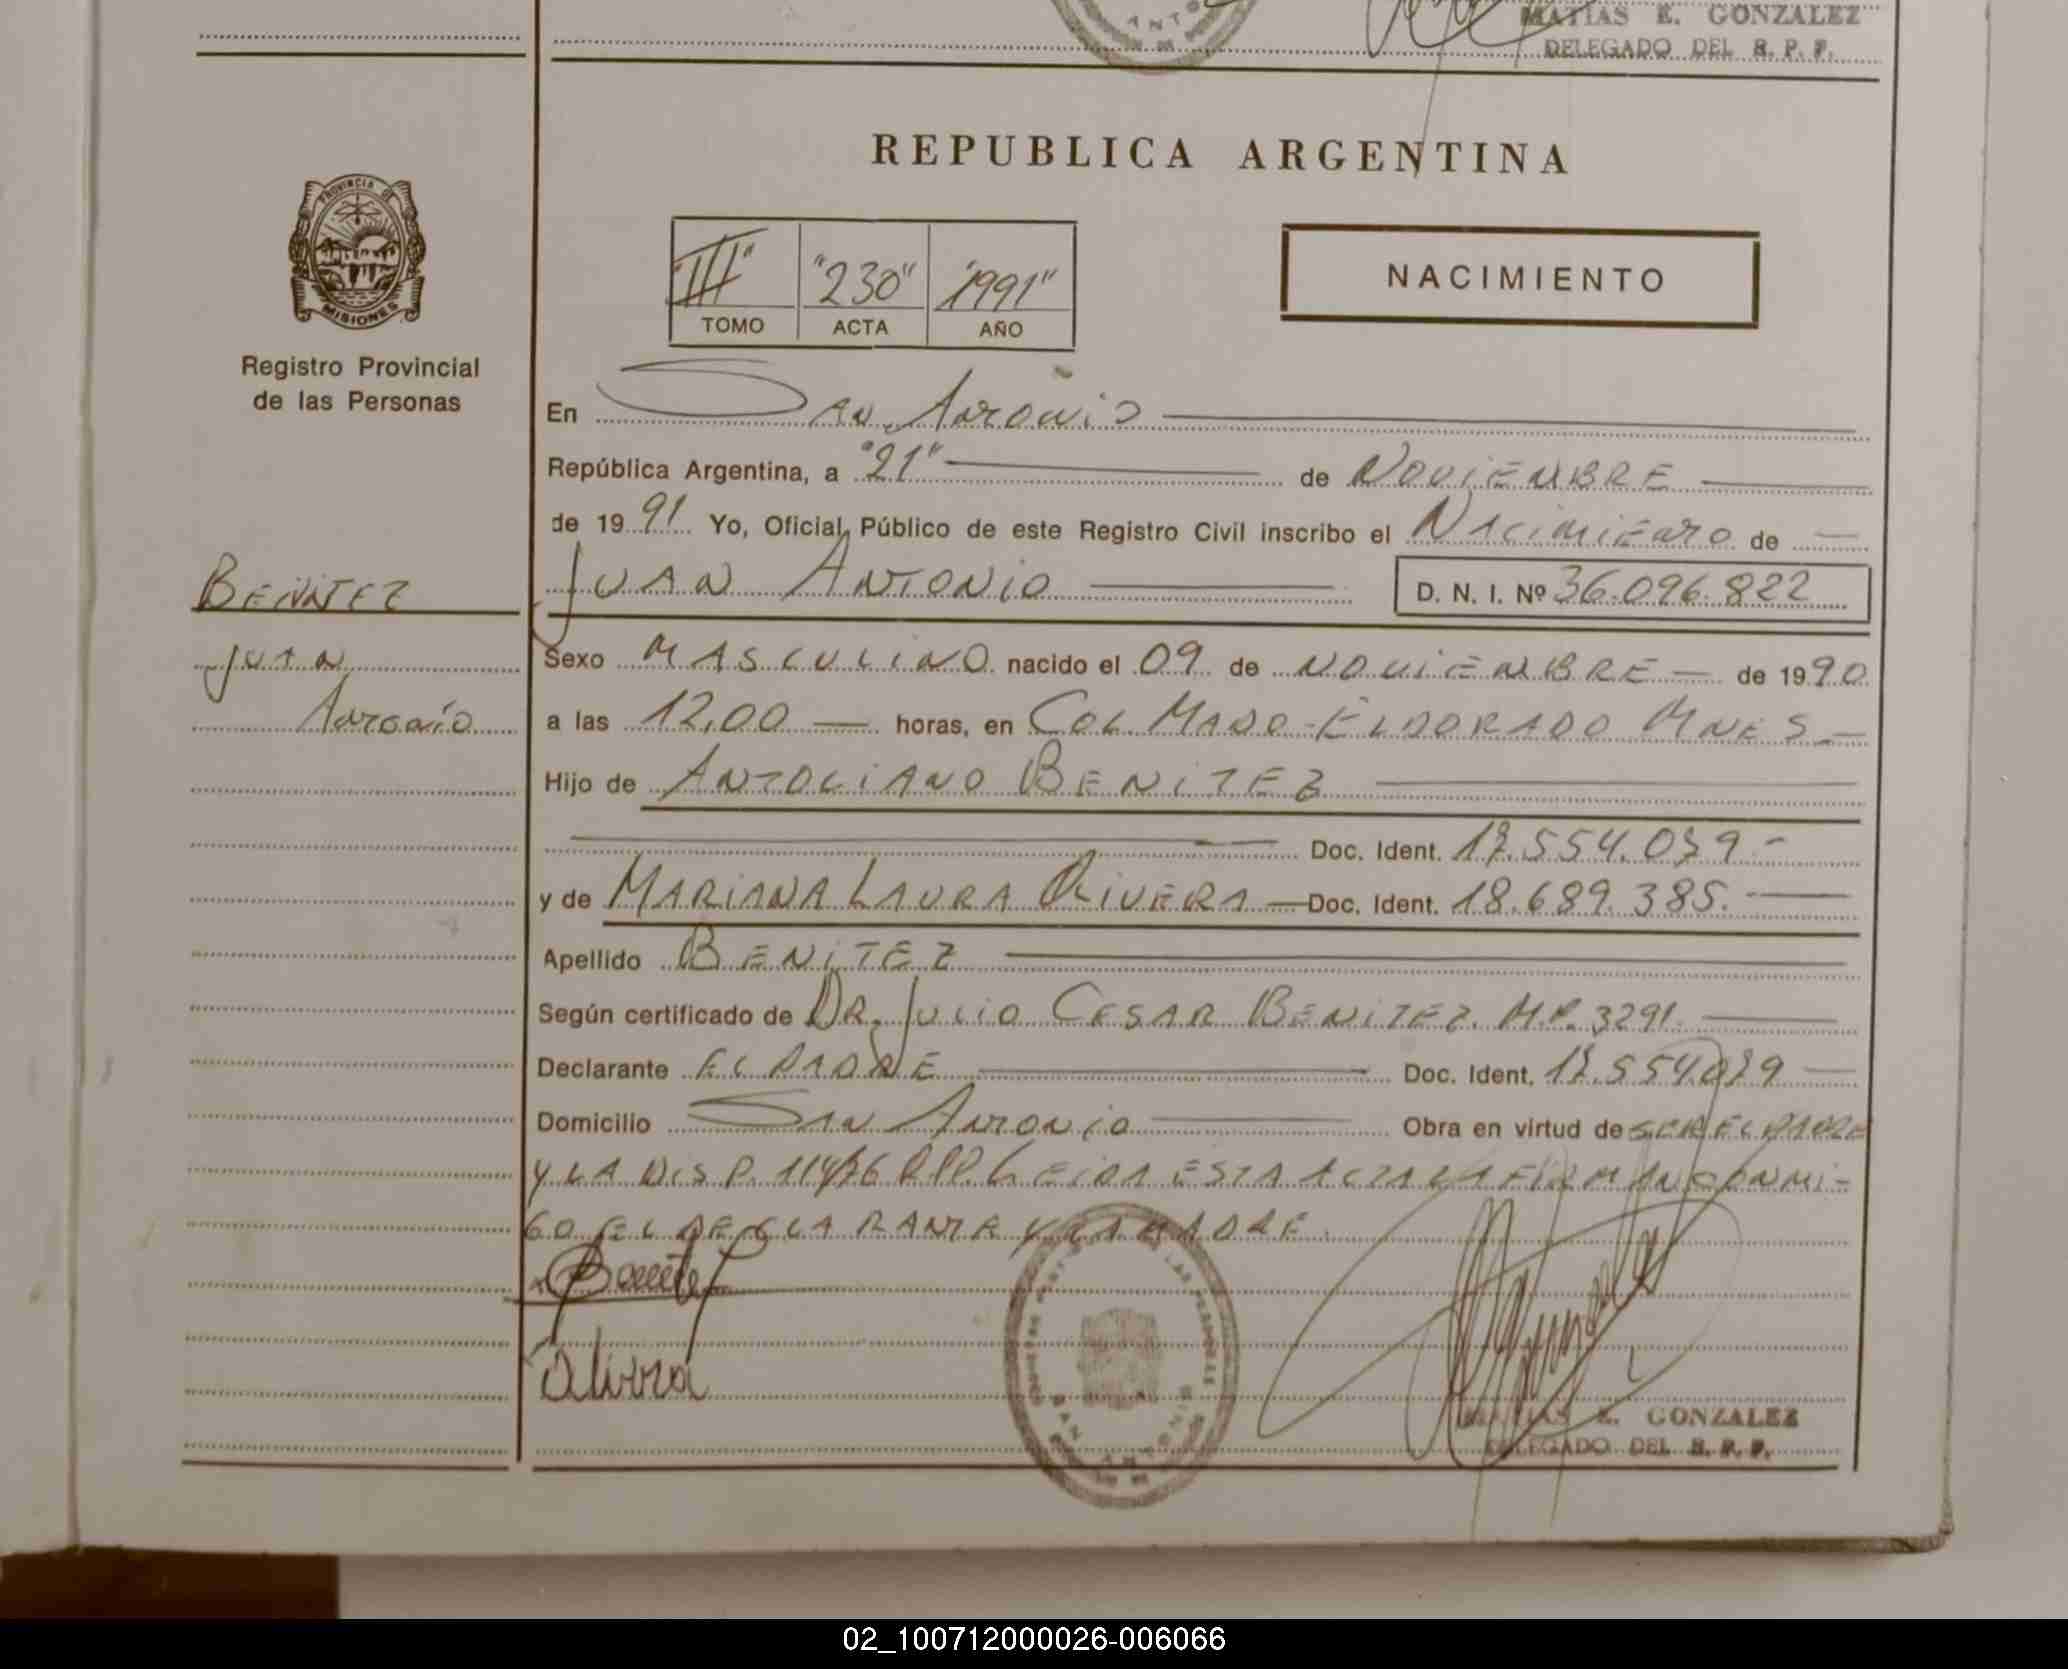 MATIAS E. GONZALEZ
DELEGADO DEL R. P. P.
REPUBLICA ARGENTINA
PROVINCIA DE
MISIONES
Registro Provincial
de las Personas
"III" "230" "1991"
TOMO ACTA AÑO
NACIMIENTO
En SAN ANTONIO
República Argentina, a "21" de NOVIEMBRE
de 1991 Yo, Oficial Público de este Registro Civil inscribo el NACIMIENTO de
BENITEZ
JUAN ANTONIO D. N. I. Nº 36.096.822
JUAN
ANTONIO
Sexo MASCULINO nacido el 09 de NOVIEMBRE de 1990
a las 12,00 horas, en COL. MADO-ELDORADO MNES
Hijo de ANTOLIANO BENITEZ
Doc. Ident.
y de MARIANA LAURA OLIVERA Doc. Ident. 18.689.385.
Apellido BENITEZ
Según certificado de DR. JULIO CESAR BENITEZ. M.P. 3291
Declarante EL PADRE Doc. Ident.
Domicilio SAN ANTONIO Obra en virtud de SER EL PADRE
Y LA DISP. 114/76 RPP. LEIDA ESTA ACTA LA FIRMAN CONMI-
GO EL DECLARANTE Y LA MADRE.
Benitez
Olivera
SAN ANTONIO
MATIAS E. GONZALEZ
DELEGADO DEL R. P. P.
02_100712000026-006066